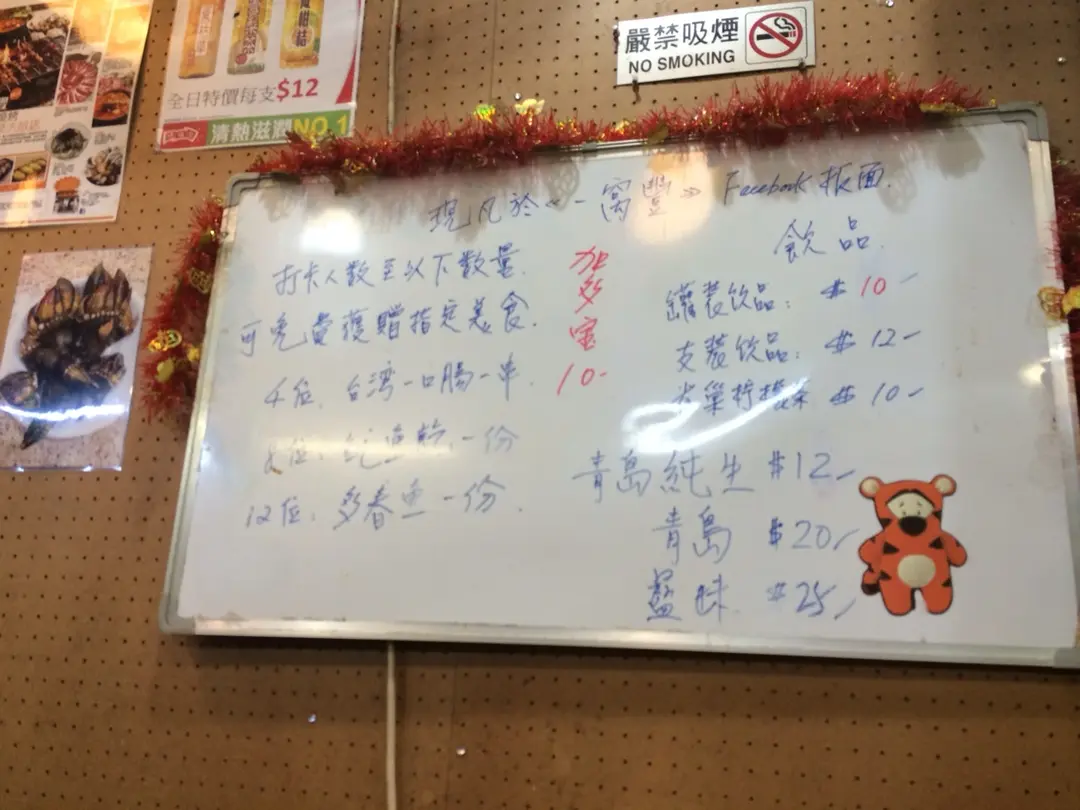 全日特價每支$12
清熱滋潤NO.1
嚴禁吸煙
NO SMOKING
現凡於《一窩豐》Facebook 板面
打卡人數至以下數量.
可免費獲贈指定美食.
4位. 台湾一口腸一串.
8位: 魷魚乾.一份
12位: 多春魚一份.
加多宝
10-
飲品
罐装饮品: $10-
支装饮品: $12-
$10-
青島純生 $12-
青島 $20-
藍妹. $25-